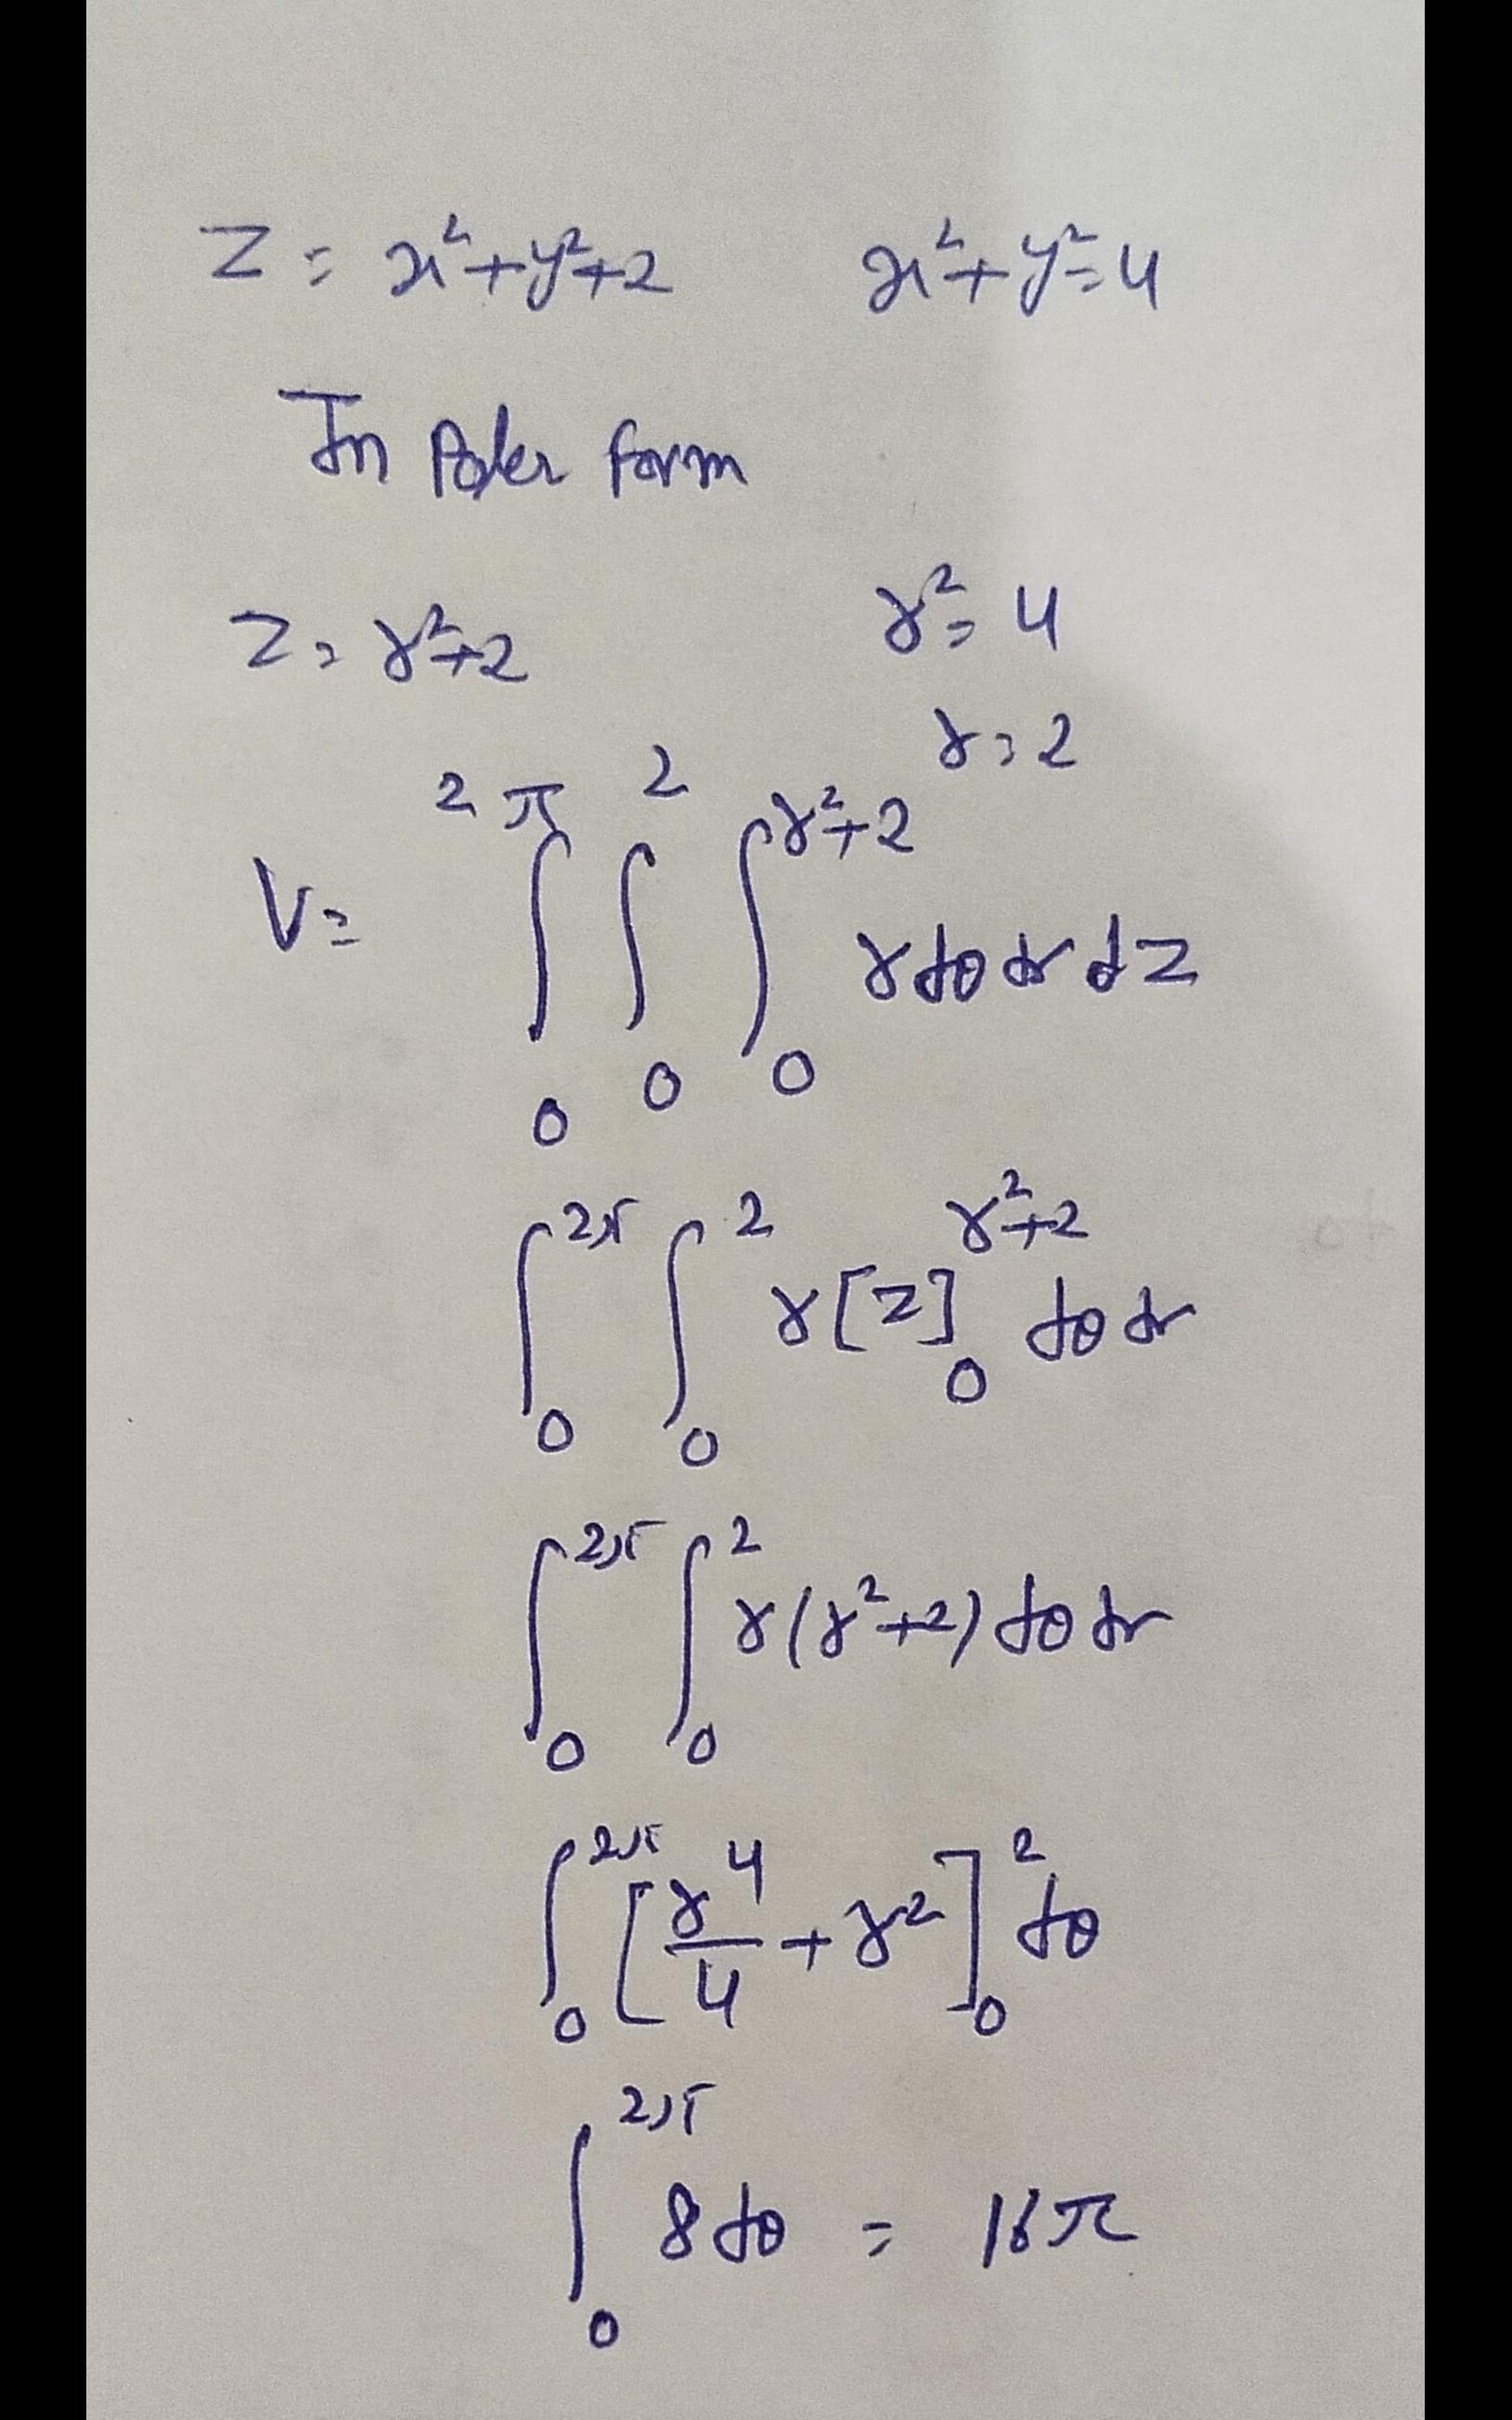 z = x²+y²+2 x²+y²=4
In Poler form
z = r²+2 r² = 4
r = 2
V = ∫₀^2π ∫₀^2 ∫₀^r²+2 r dθ dr dz
∫₀^2π ∫₀^2 r[z]₀^r²+2 dθ dr
∫₀^2π ∫₀^2 r(r²+2) dθ dr
∫₀^2π [r⁴/4 + r²]₀^2 dθ
∫₀^2π 8 dθ = 16π